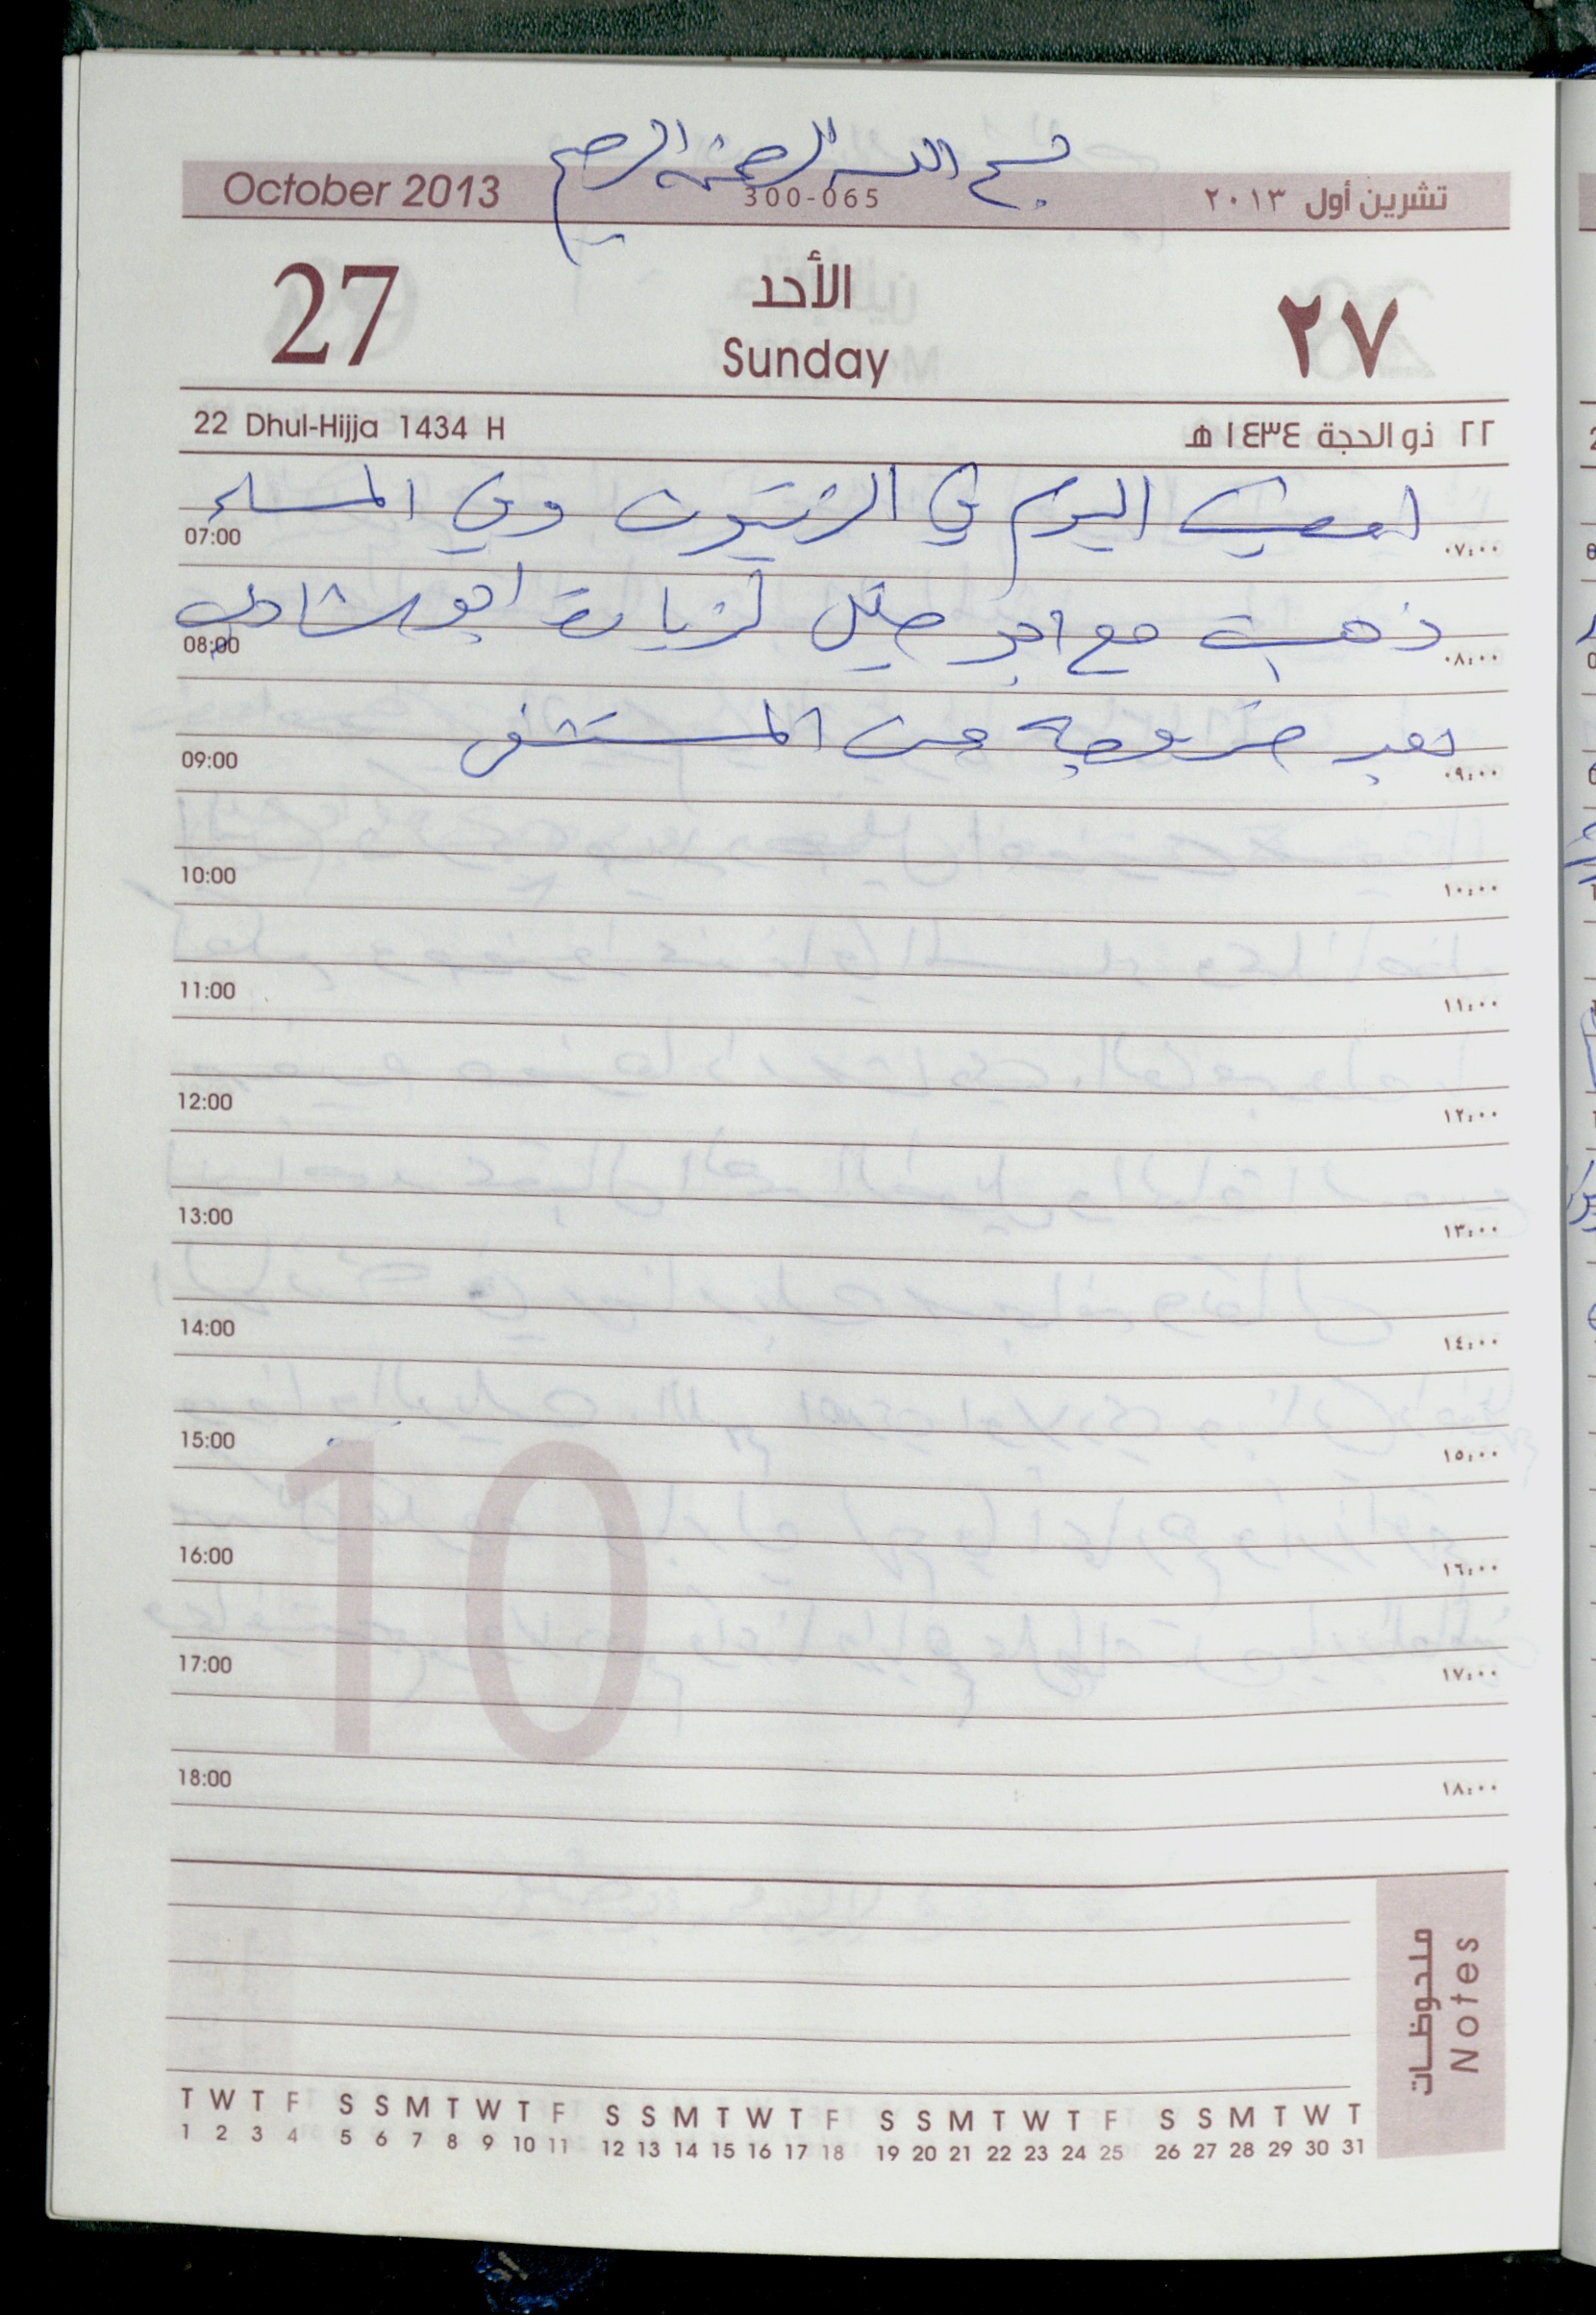 بسم الله الرحمن الرحيم
October 2013 300-065 تشرين أول ٢٠١٣
27 الأحد ٢٧
Sunday
22 Dhul-Hijja 1434 H ٢٢ ذو الحجة ١٤٣٤ هـ
امضيت اليوم في الزيتون وفي المساء
07:00 ٠٧:٠٠
ذهبت مع ابو خليل لزيارة ابو شادي
08:00 ٠٨:٠٠
بعد خروجه من المستشفى
09:00 ٠٩:٠٠
10:00 ١٠:٠٠
11:00 ١١:٠٠
12:00 ١٢:٠٠
13:00 ١٣:٠٠
14:00 ١٤:٠٠
15:00 ١٥:٠٠
10
16:00 ١٦:٠٠
17:00 ١٧:٠٠
18:00 ١٨:٠٠
ملحوظات
Notes
T W T F S S M T W T F S S M T W T F S S M T W T F S S M T W T
1 2 3 4 5 6 7 8 9 10 11 12 13 14 15 16 17 18 19 20 21 22 23 24 25 26 27 28 29 30 31